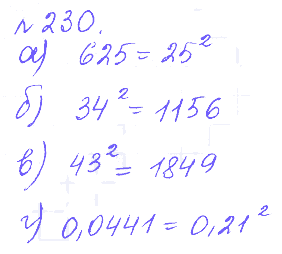 № 230.
а) 625 = 25²
б) 34² = 1156
в) 43² = 1849
г) 0,0441 = 0,21²